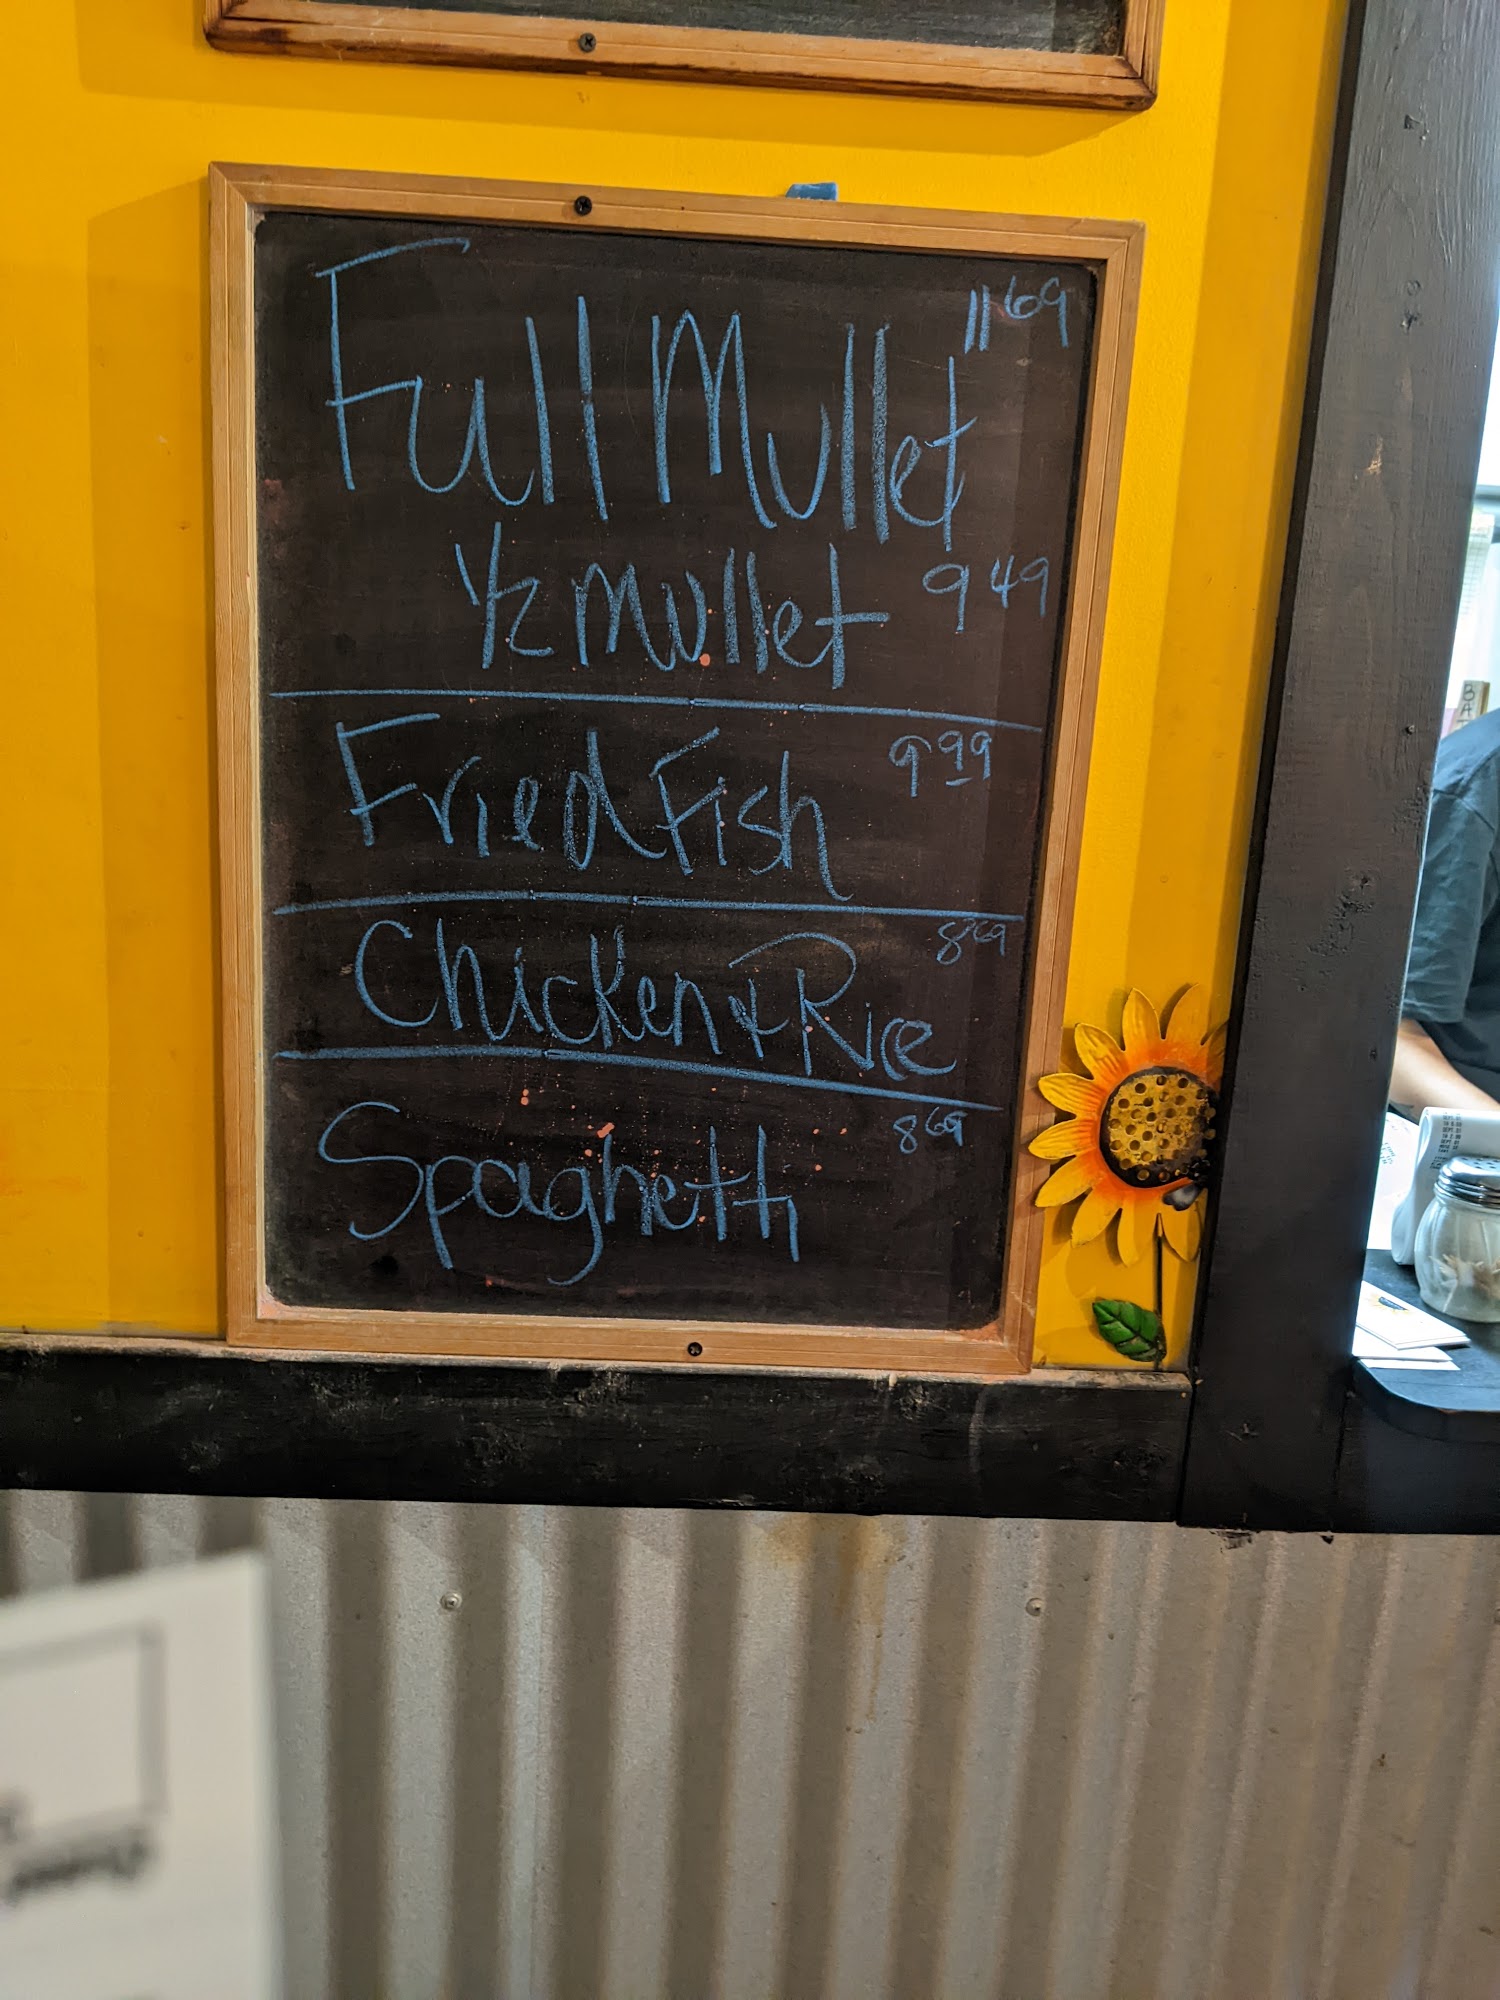 Full Mullet 11 69
1/2 Mullet 9 49
Fried Fish 9 99
Chicken & Rice 8 69
Spaghetti 8 69